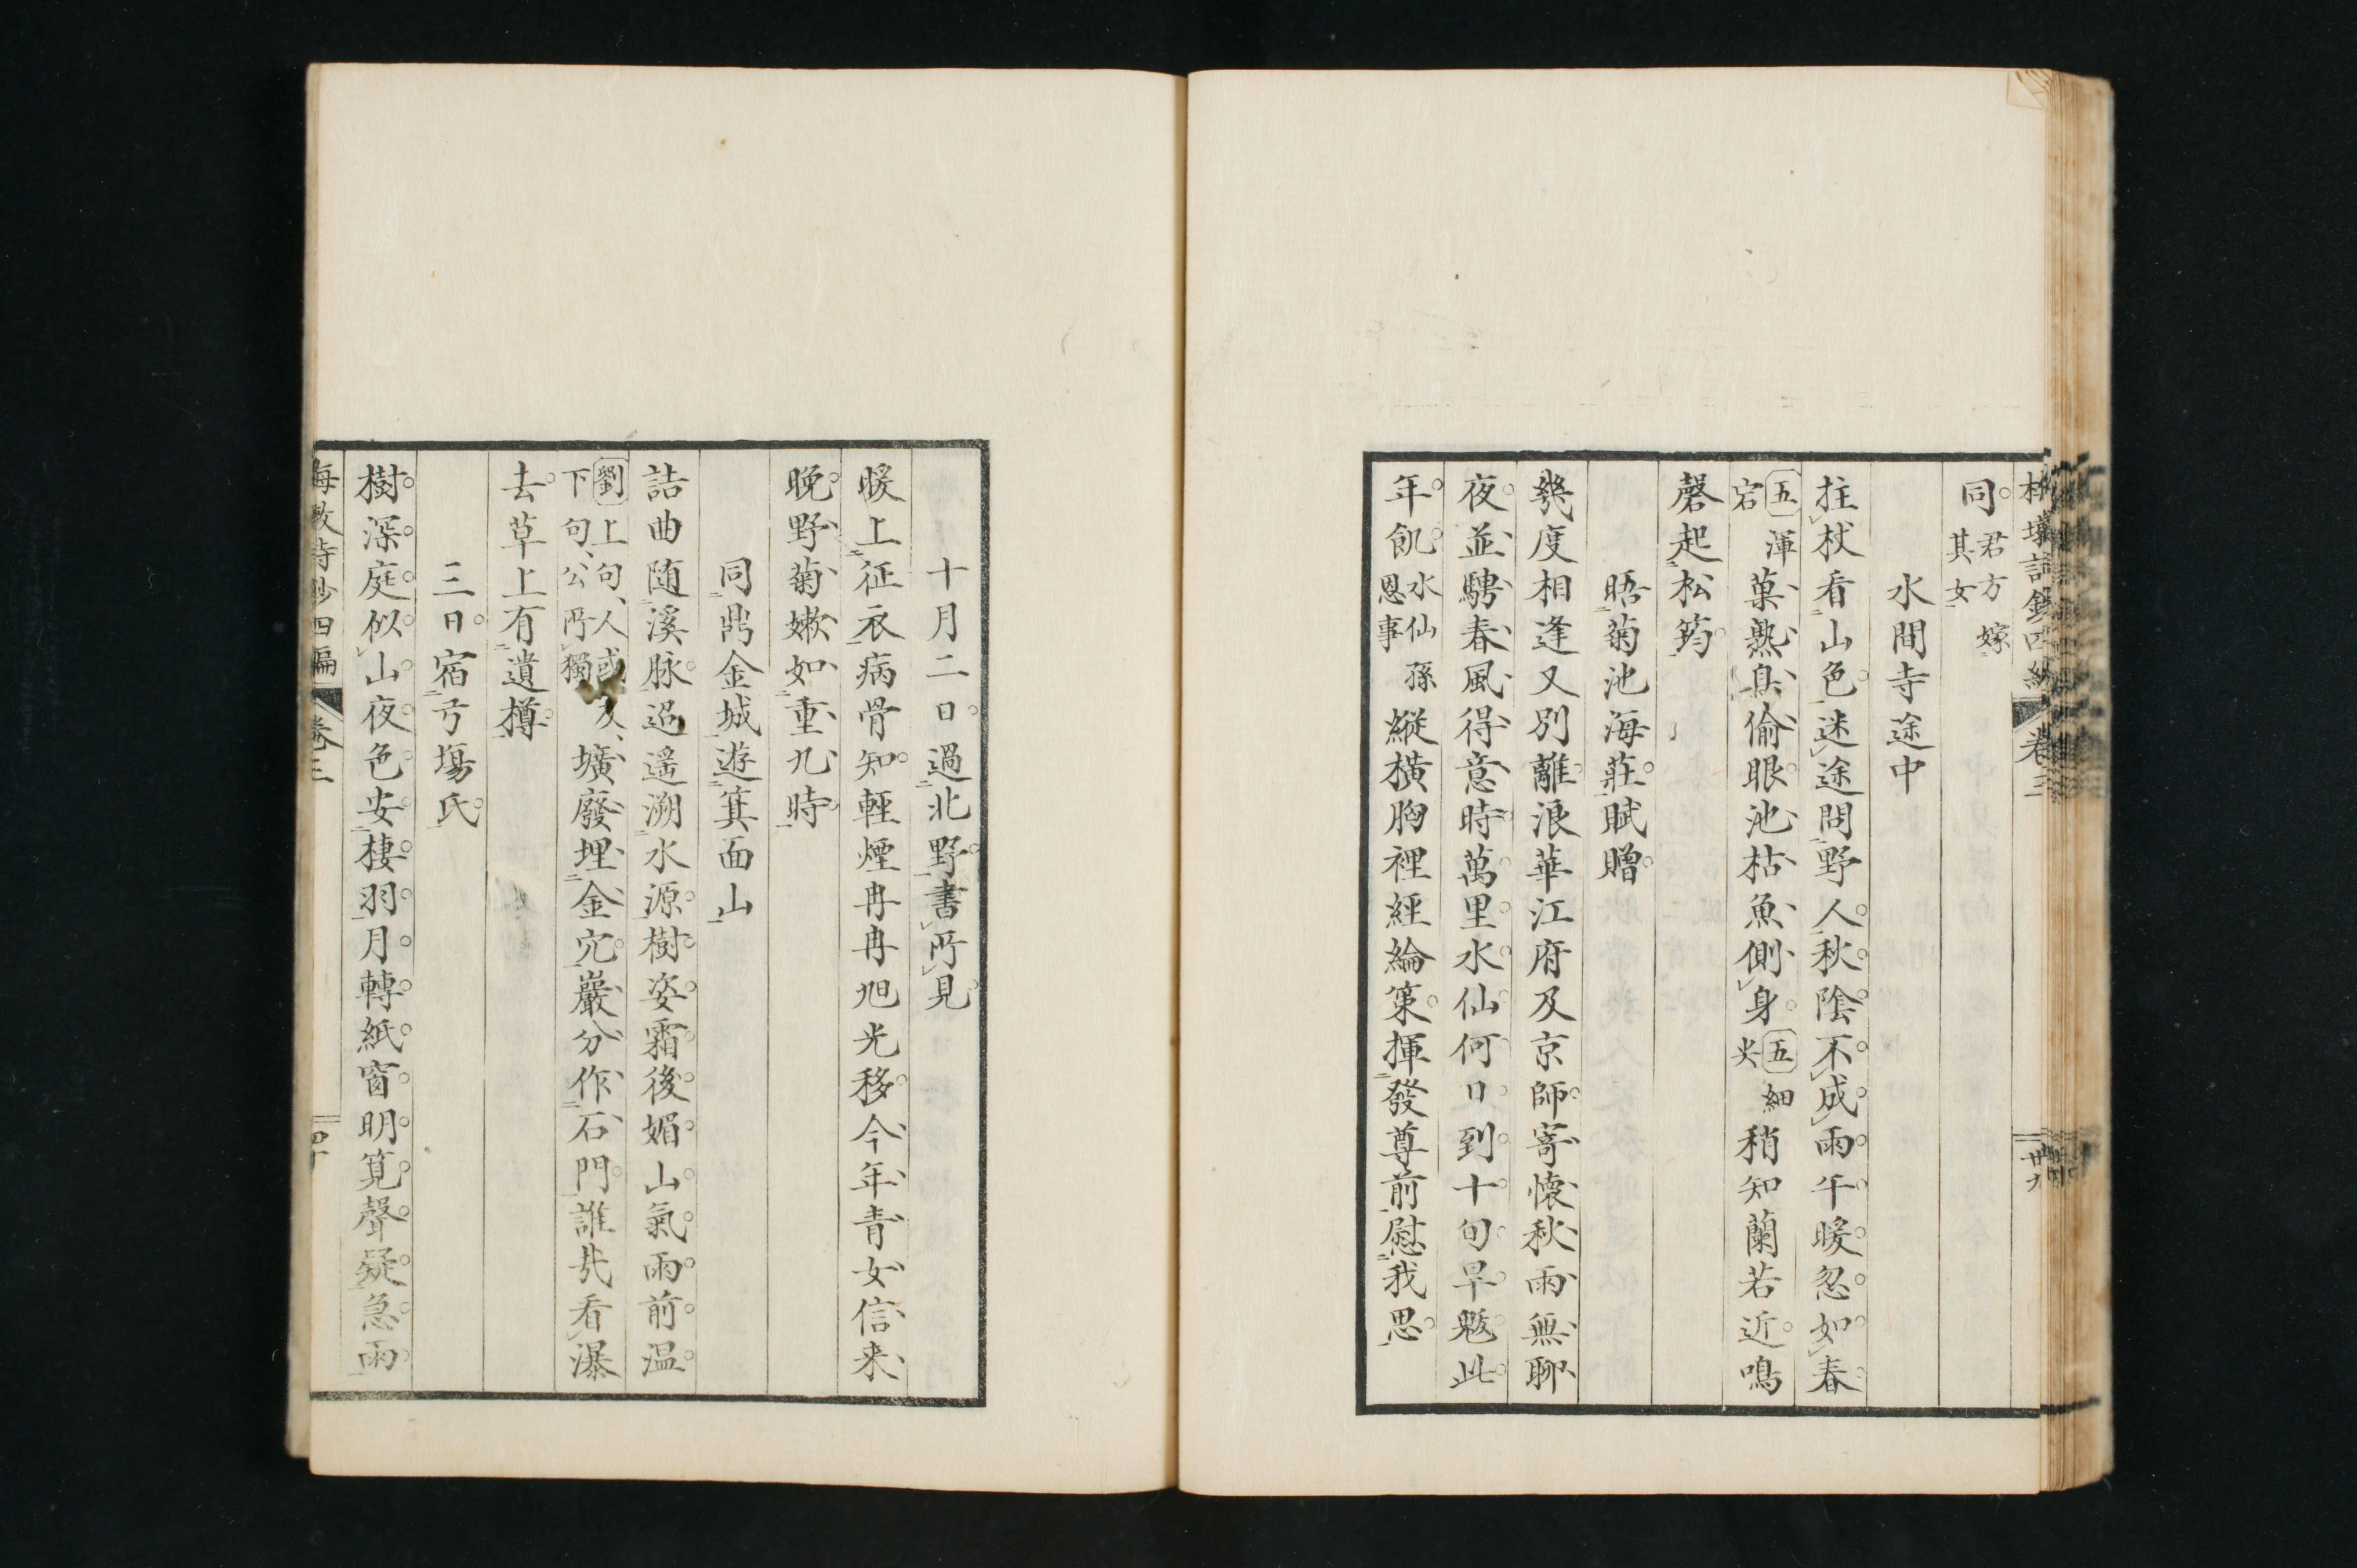 同君方嫁其女
水間寺途中
拄杖看山色迷途問野人秋陰不成雨午暖忽如春
五渾宕菓熟臭偷眼池枯魚側身五細尖稍知蘭若近鳴
磬起松筠
晤菊池海莊賦贈
幾度相逢又別離浪華江府及京師寄懷秋雨無聊
夜並騁春風得意時萬里水仙何日到十旬旱魃此
年飢水仙孫恩事縱橫胸裡經綸策揮發尊前慰我思
卷三
廿九
十月二日過北野書所見
暖上征衣病骨知輕煙冉冉旭光移今年青女信来
晚野菊嫰如重九時
同鼎金城遊箕面山
詰曲随溪脉迢遥溯水源樹姿霜後媚山氣雨前温
劉上句人或及下句公所獨壙廢埋金穴巖分作石門誰兂看瀑
去草上有遺樽
三日宿弓場氏
樹深庭似山夜色安棲羽月轉紙窗明筧聲疑急雨
詩鈔四編
卷三